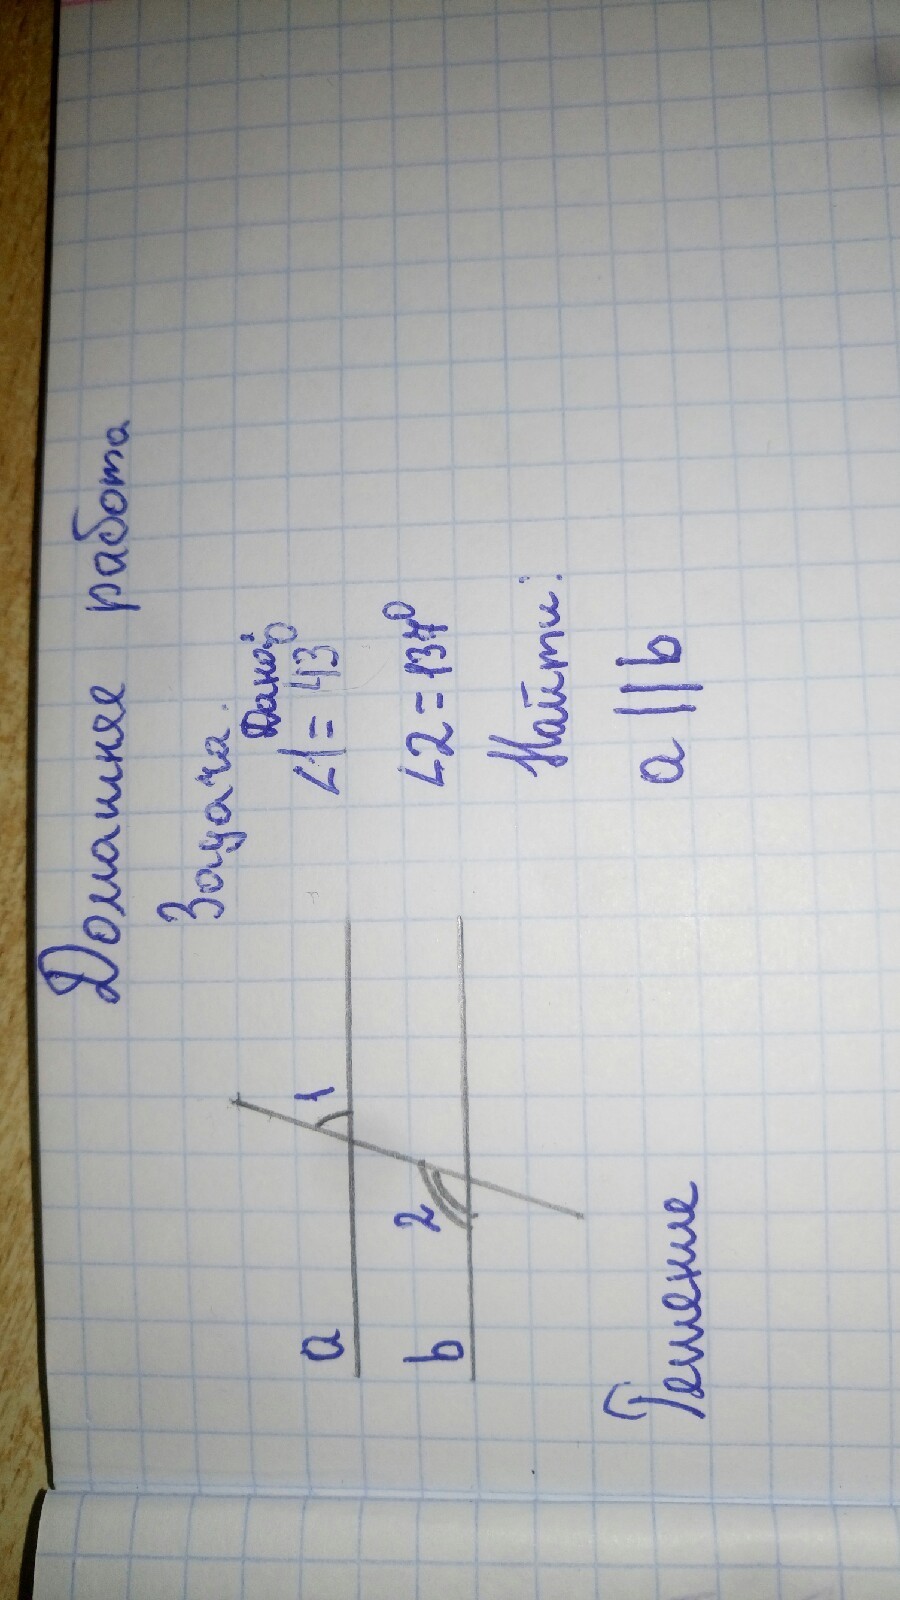 Домашняя работа
Задача.
Дано:
∠1 = 43°
∠2 = 137°
Найти:
a || b
a
1
2
b
Решение